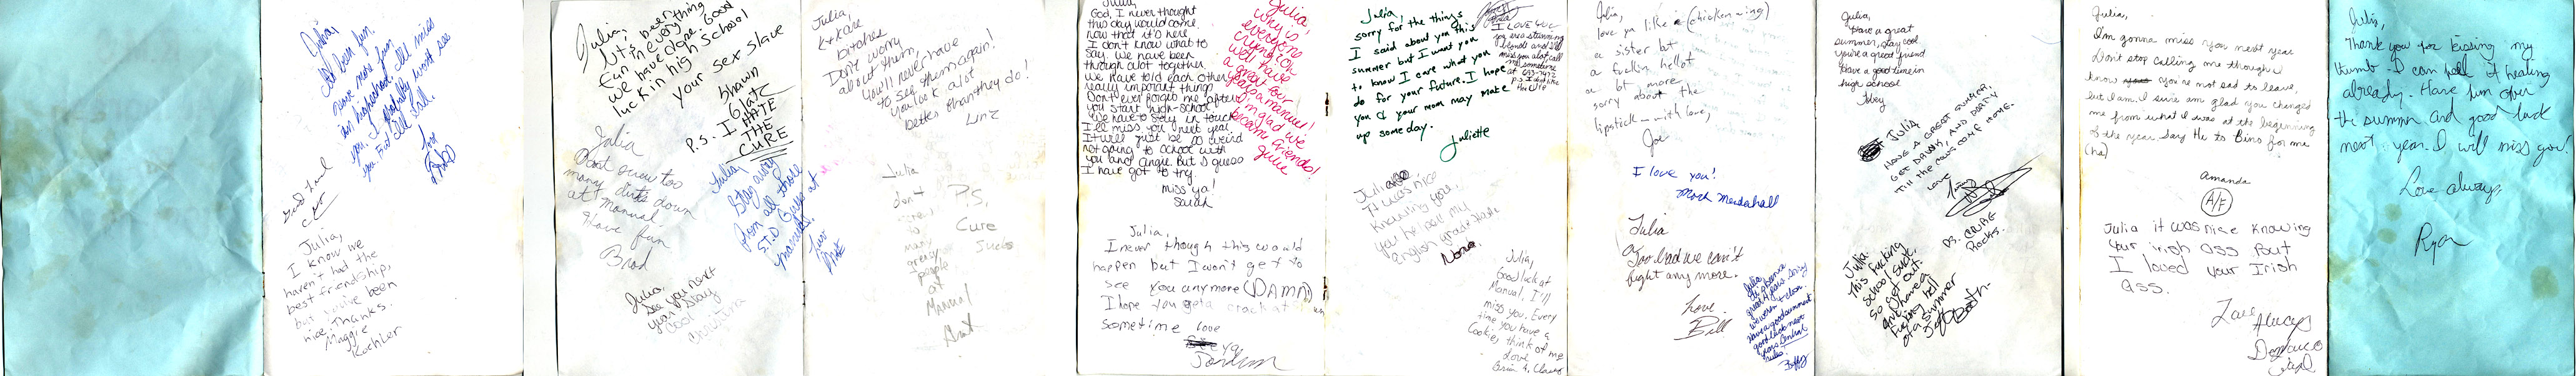 Julia,
It's been fun.
Have more fun
in highschool. I'll miss
you. I probably won't see
you. First I'll call.
Love
Good Luck
Julia,
I know we
haven't had the
best friendship,
but you've been
nice. Thanks.
Maggie
Koehler
Julia,
It's been
fun in everything
we have done. Good
luck in high school
your sex slave
Shawn
Glatz
P.S. I HATE
THE
CURE
Julia
Dont screw too
many dudes down
at manual.
Have fun
Brad
Julia,
Stay away
from all those
S.T.D Guys at
manual.
Luv
Julia,
See you next
year stay
cool
Christina
Julia,
K+K are
bitches
Don't worry
about them,
you'll never have
to see them again!
you look a lot
better than they do!
Linz
Julia
don't
screw
to
many
greasy
people
at
Manual
P.S.
Cure
Sucks
Julia,
God, I never thought
this day would come,
now that it's here
I don't know what to
say. We have been
through alot together.
We have told each other
really important things
Don't ever forget me after
you start high-school.
We have to stay in touch
I'll miss you next year,
It will just be so weird
not going to school with
you and Angie. But I guess
I have got to try.
miss ya!
Sarah
Julia,
why is
everyone
crying
we'll have
a great four
years at manual!
I'm glad we
became friends!
Julie
Julia,
I never though this would
happen but I won't get to
see you anymore (DAMN)
I hope you get a crack at
sometime love
See ya
Jordan
Julia,
sorry for the things
I said about you this
summer but I want you
to know I care what you
do for your future. I hope
you & your mom may make
up some day.
Juliette
I LOVE you
you are a stunning
blonde and I'll
miss you alot call
me sometime
at 693-7492
Julia
It was nice
Knowing you,
you helped my
english grade
Norva
Julia,
Good luck at
Manual, I'll
miss you. Every
time you have a
Cookie, think of me
Love
Julia,
love ya like a (chicken wing)
a sister but
a fuckin hellof
a lot more.
sorry about the
lipstick - with love,
Joe
I love you!
Mark Mendahall
Julia
Too bad we can't
fight any more.
Love
Bill
Julia,
Have a great
summer, stay cool
you're a great friend
Have a good time in
high school
Tobey
Julia
HAVE A GREAT SUMMER,
GET DRUNK, AND PARTY
TILL THE COWS COME HOME.
Love
P.S. CURE
Rocks.
Julia
This fucking
school sucks,
so get out
and have a
fucking hell
of a summer
Jeff Booth
Julia,
I'm gonna miss you next year
Don't stop calling me though. I
know you're not sad to leave,
but I am. I sure am glad you changed
me from what I was at the beginning
of the year. Say Hi to Bino for me
(ha)
Amanda
A/F
Julia it was nice knowing
your irish ass but
I loved your Irish
ass.
Love Always
Julia,
Thank you for kissing my
thumb - I can feel it healing
already. Have fun over
the summer and good luck
next year. I will miss you!
Love always,
Ryan